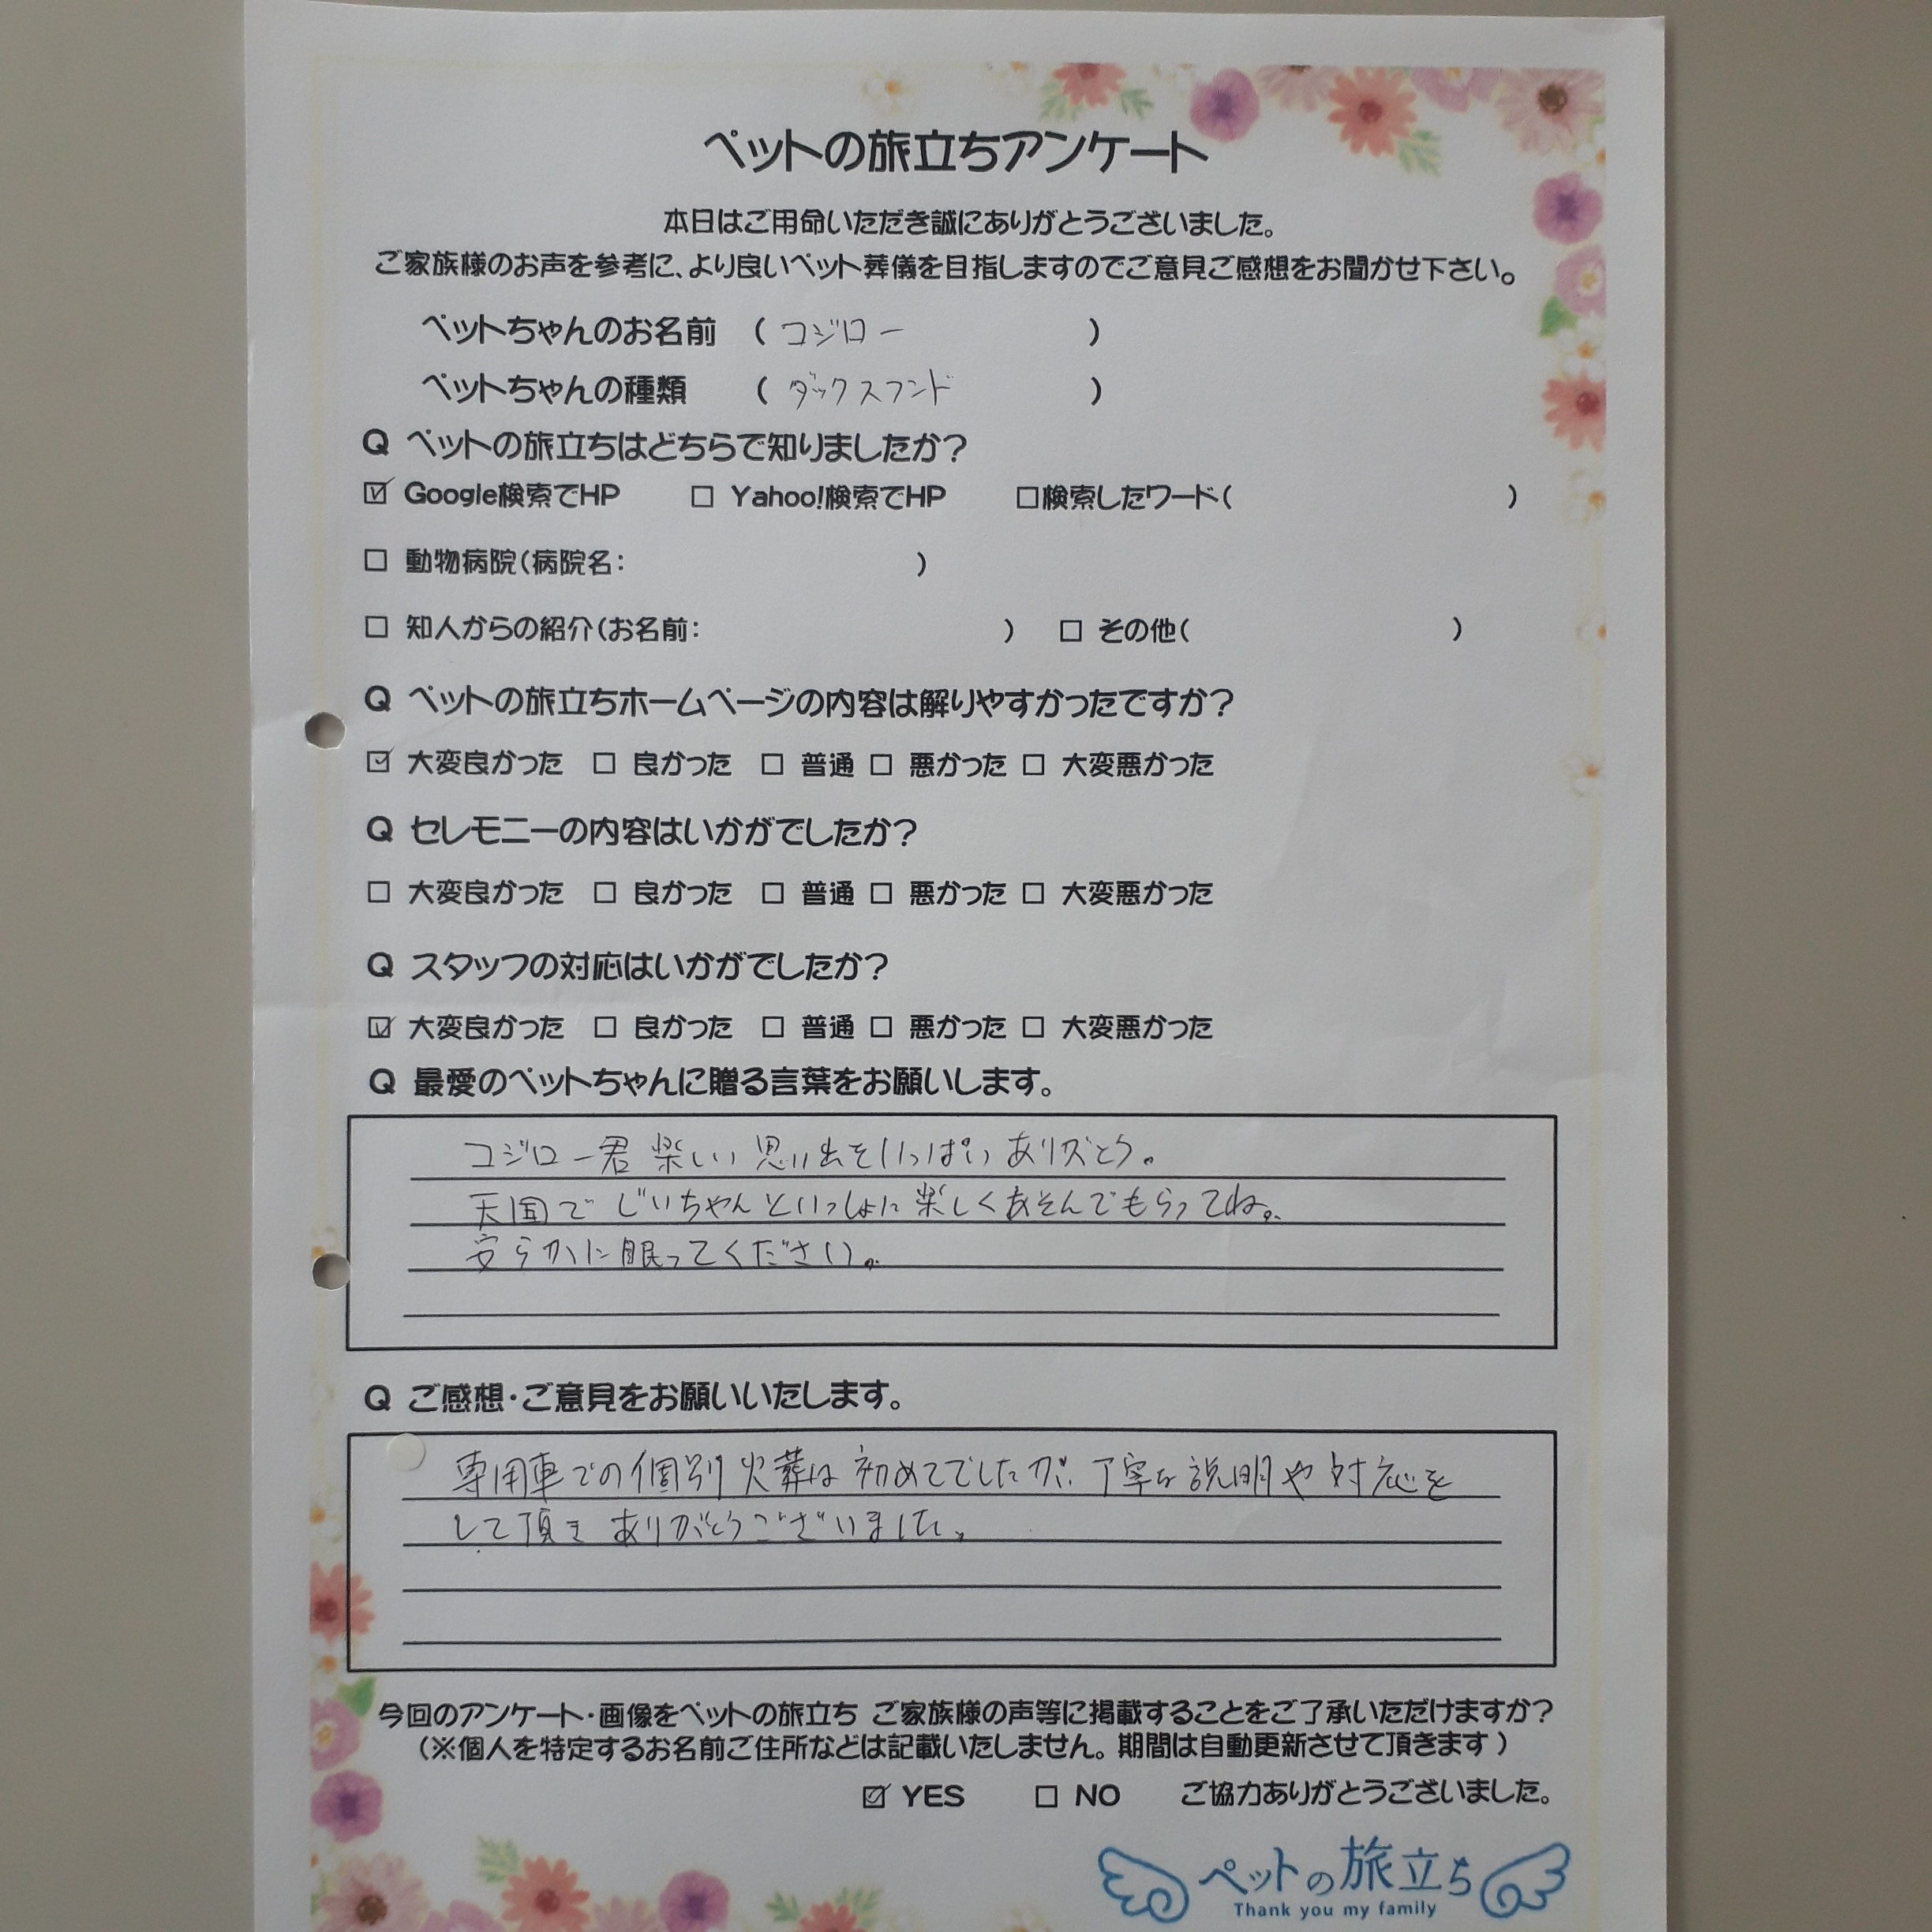 ペットの旅立ちアンケート
本日はご用命いただき誠にありがとうございました。
ご家族様のお声を参考に、より良いペット葬儀を目指しますのでご意見ご感想をお聞かせ下さい。
ペットちゃんのお名前 ( コジロー )
ペットちゃんの種類 ( ダックスフンド )
Q ペットの旅立ちはどちらで知りましたか？
☑ Google検索でHP □ Yahoo!検索でHP □検索したワード( )
□ 動物病院(病院名: )
□ 知人からの紹介(お名前: ) □ その他( )
Q ペットの旅立ちホームページの内容は解りやすかったですか？
☑ 大変良かった □ 良かった □ 普通 □ 悪かった □ 大変悪かった
Q セレモニーの内容はいかがでしたか？
□ 大変良かった □ 良かった □ 普通 □ 悪かった □ 大変悪かった
Q スタッフの対応はいかがでしたか？
☑ 大変良かった □ 良かった □ 普通 □ 悪かった □ 大変悪かった
Q 最愛のペットちゃんに贈る言葉をお願いします。
コジロー君 楽しい 思い出をいっぱい ありがとう。
天国で じいちゃんといっしょに楽しくあそんでもらってね。
安らかに眠ってください。
Q ご感想・ご意見をお願いいたします。
専用車での個別火葬は初めてでしたが、丁寧な説明や対応を
して頂き ありがとうございました。
今回のアンケート・画像をペットの旅立ち ご家族様の声等に掲載することをご了承いただけますか？
(※個人を特定するお名前ご住所などは記載いたしません。期間は自動更新させて頂きます)
☑ YES □ NO ご協力ありがとうございました。
ペットの旅立ち
Thank you my family